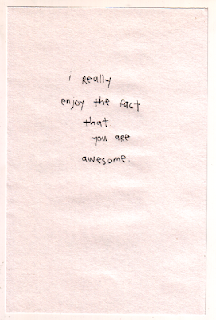 i REally
enjoy the fact
that
you are
awesome.